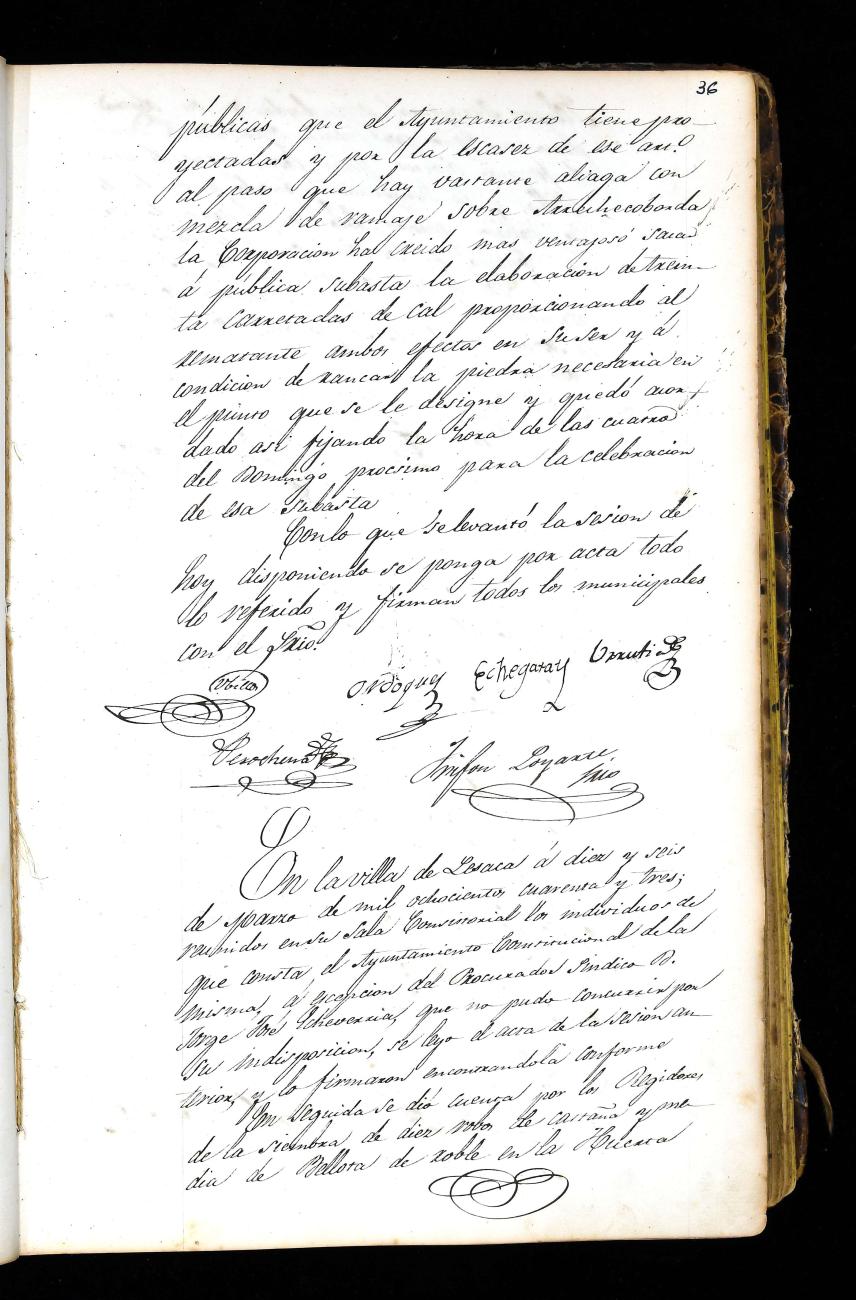 36
públicas que el Ayuntamiento tiene pro-
yectadas y por la escasez de ese art.º
al paso que hay vastante aliaga con
mezcla de ramaje sobre Arrechecoborda,
la Corporacion ha creido mas ventajosó sacar
á publica subasta la elaboracion de trein-
ta carretadas de cal proporcionando al
rematante ambos efectos en su ser y á
condicion de rancar la piedra necesaria en
el punto que se le designe y quedó acor-
dado asi fijando la hora de las cuatro
del Domingo procsimo para la celebracion
de esa subasta
Con lo que se levantó la sesion de
hoy disponiendo se ponga por acta todo
lo referido y firman todos los municipales
con el Srio.
Ordoquy Echegaray Urruti
Perochena
Trifon Loyarte
Srio
En la villa de Lesaca á diez y seis
de Marzo de mil ochocientos cuarenta y tres;
reunidos en su Sala Consistorial los individuos de
que consta el Ayuntamiento Constitucional de la
misma, á escepcion del Procurador Sindico D.
Jorge José Echeverria, que no pudo concurrir por
su indisposicion, se leyo el acta de la sesion an-
terior, y lo firmaron encontrandola conforme
En seguida se dió cuenta por los Regidores
de la siembra de diez robos de castaña y me-
dia de Bellota de roble en la Huerta